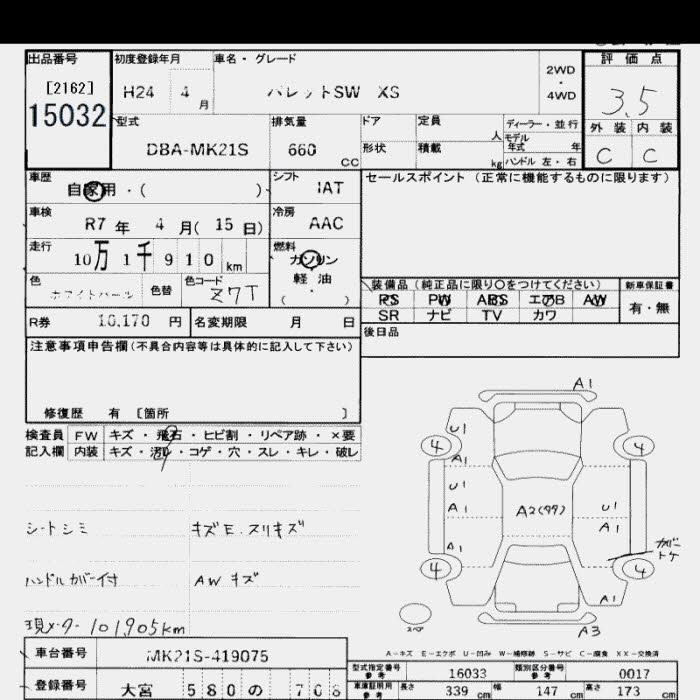 出品番号 初度登録年月 車名・グレード 評価点
[2162] H24 4月 パレットSW XS 2WD・4WD 3.5
15032 外装 内装
型式 排気量 ドア 定員 人 ディーラー・並行
DBA-MK21S 660 CC 形状 積載 kg モデル年式 年 C C
ハンドル 左・右
車歴 自家用・( ) シフト IAT セールスポイント（正常に機能するものに限ります）
車検 R7年 4月(15日) 冷房 AAC
走行 10万1千910km 燃料 ガソリン
軽油
( ・ )
色 ホワイトパール 色替 色コード Z7T
装備品（純正品に限り○をつけてください） 新車保証書
PS PW ABS エアB AW 有・無
SR ナビ TV カワ
R券 10,170円 名変期限 月 日 後日品
注意事項申告欄（不具合内容等は具体的に記入して下さい）
修復歴 有 〔箇所 〕
検査員 FW キズ・飛石・ヒビ割・リペア跡・×要
記入欄 内装 キズ・汚レ・コゲ・穴・スレ・キレ・破レ
シートシミ キズE.スリキズ
ハンドルカバー付 AWキズ
現メータ-101905km
A1
4 U1 4
A1
U1
A1 A2(99) U1
A1
A1 カバートケ
4 4
A1
スペア
A3
A-キズ E-エクボ U-凹み W-補修跡 S-サビ C-腐食 XX-交換済
車台番号 MK21S-419075
登録番号 大宮 580 の 708
型式指定番号 参考 16033 類別区分番号 参考 0017
車庫証明用 参考 長さ 339 cm 幅 147 cm 高さ 173 cm